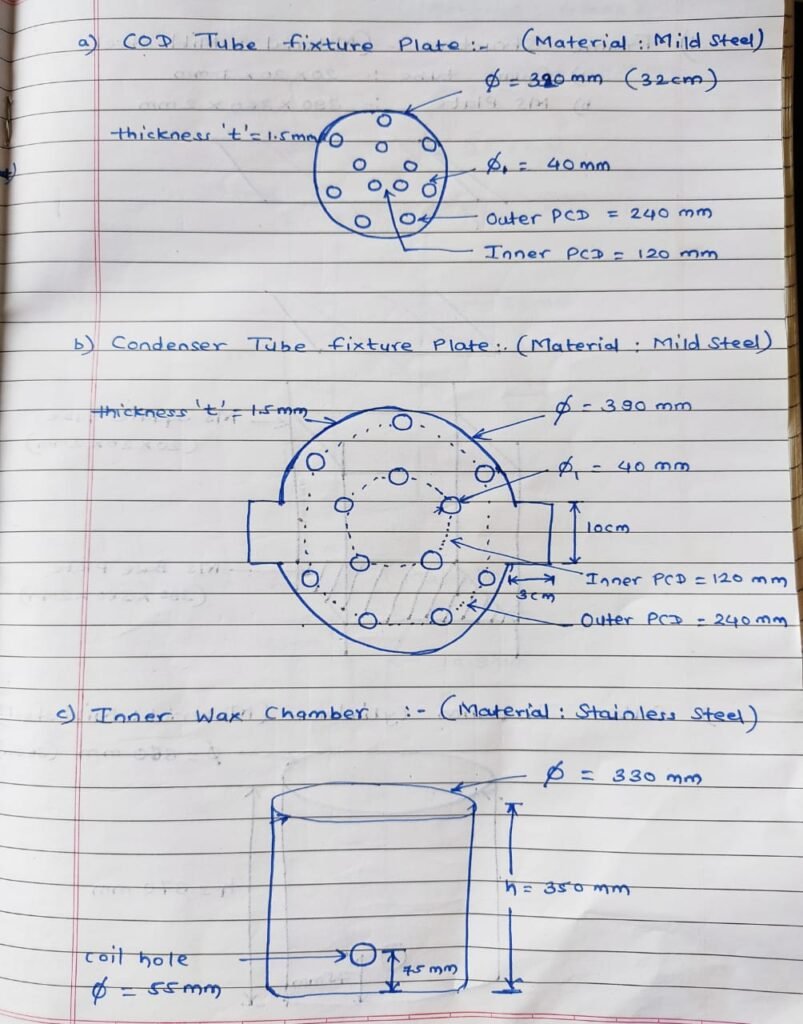 a) COD Tube fixture Plate :- (Material : Mild Steel)
ϕ = 320 mm (32cm)
thickness 't' = 1.5mm
ϕ₁ = 40 mm
Outer PCD = 240 mm
Inner PCD = 120 mm
b) Condenser Tube fixture Plate :- (Material : Mild Steel)
thickness 't' = 1.5mm
ϕ = 390 mm
ϕ₁ = 40 mm
10cm
Inner PCD = 120 mm
3cm
Outer PCD = 240 mm
c) Inner Wax Chamber :- (Material : Stainless Steel)
ϕ = 330 mm
h = 350 mm
coil hole
75 mm
ϕ = 55mm